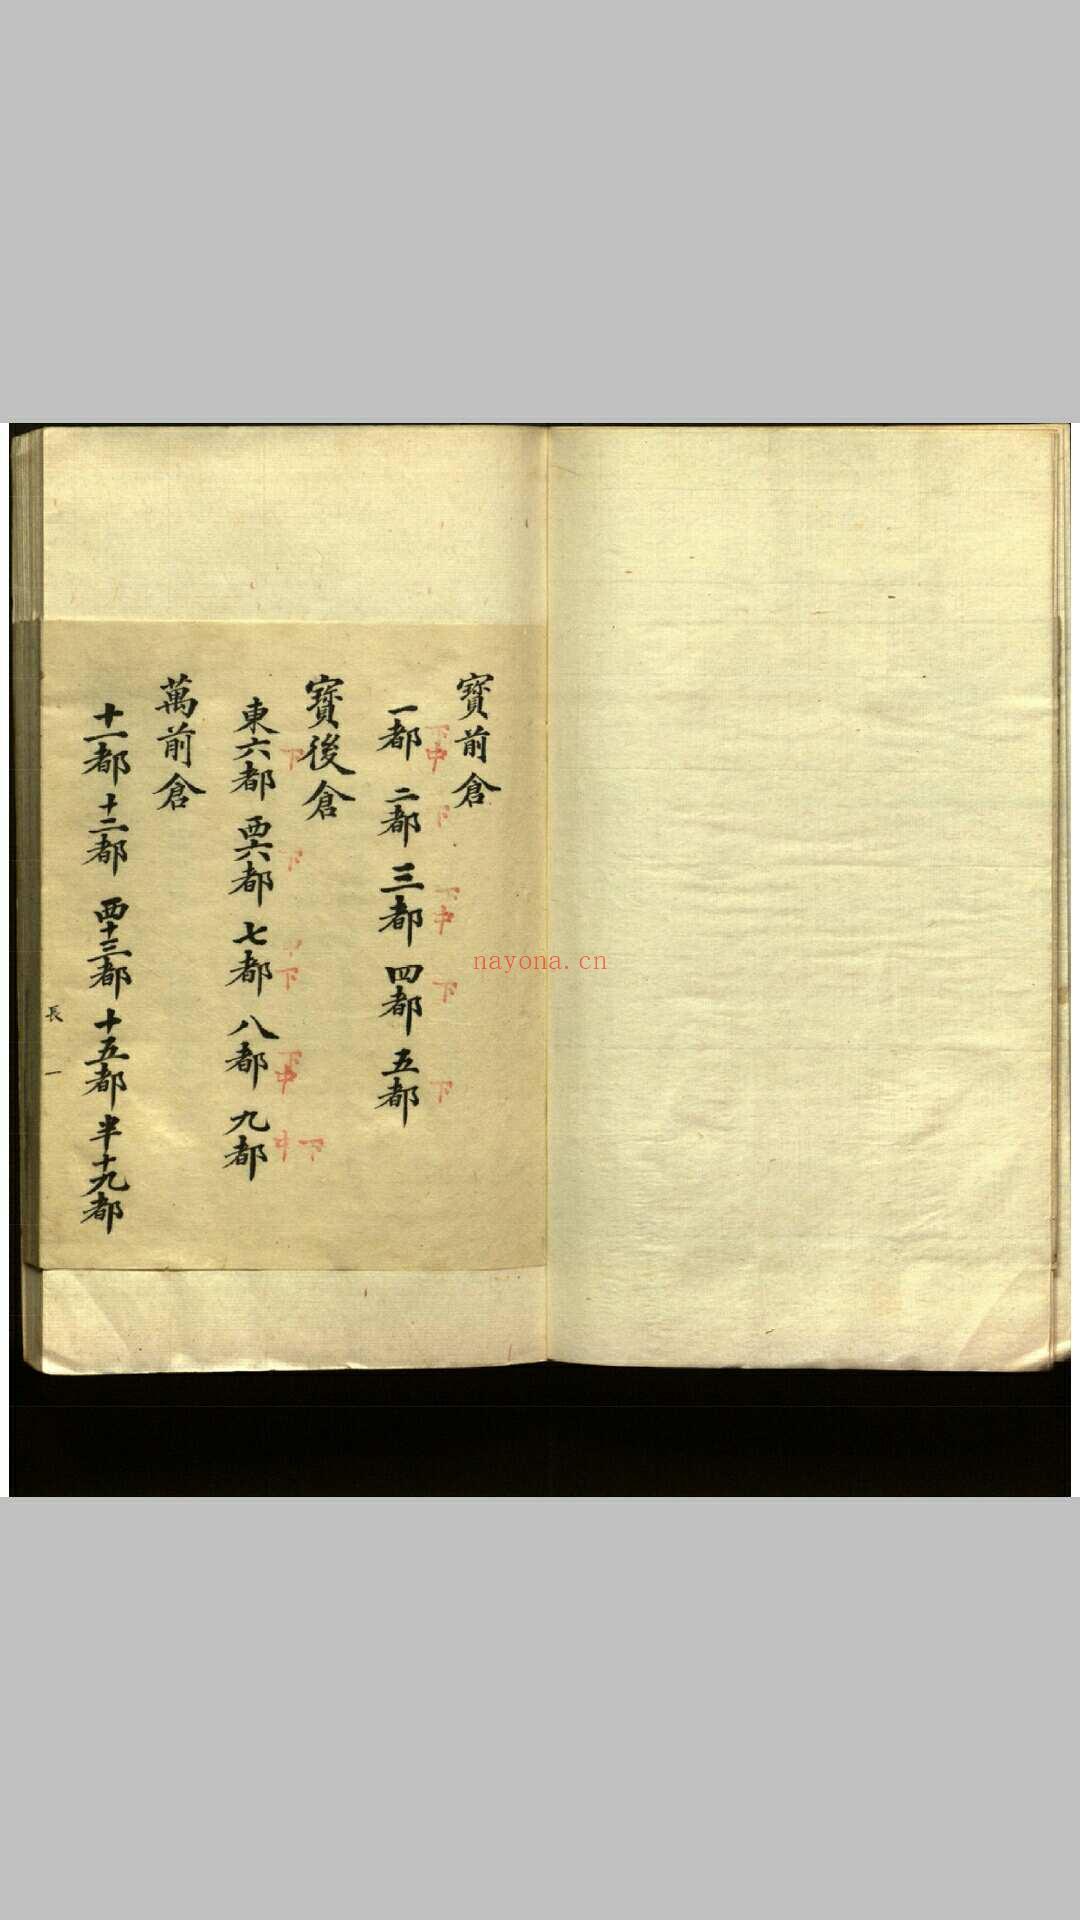 寳前倉
下中 下 下中 下 下
一都 二都 三都 四都 五都
寳後倉
下 下 中下 下中 中下
東六都 西六都 七都 八都 九都
萬前倉
十一都 十二都 西十三都 十五都 半十九都
長 一
nayona.cn